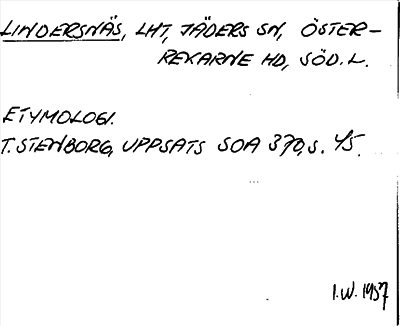 LINDERSNÄS, LHT, JÄDERS SN, ÖSTER-
REKARNE HD, SÖD. L.
ETYMOLOGI.
T. STENBORG, UPPSATS SOA 370, S. 45.
I.W. 1957